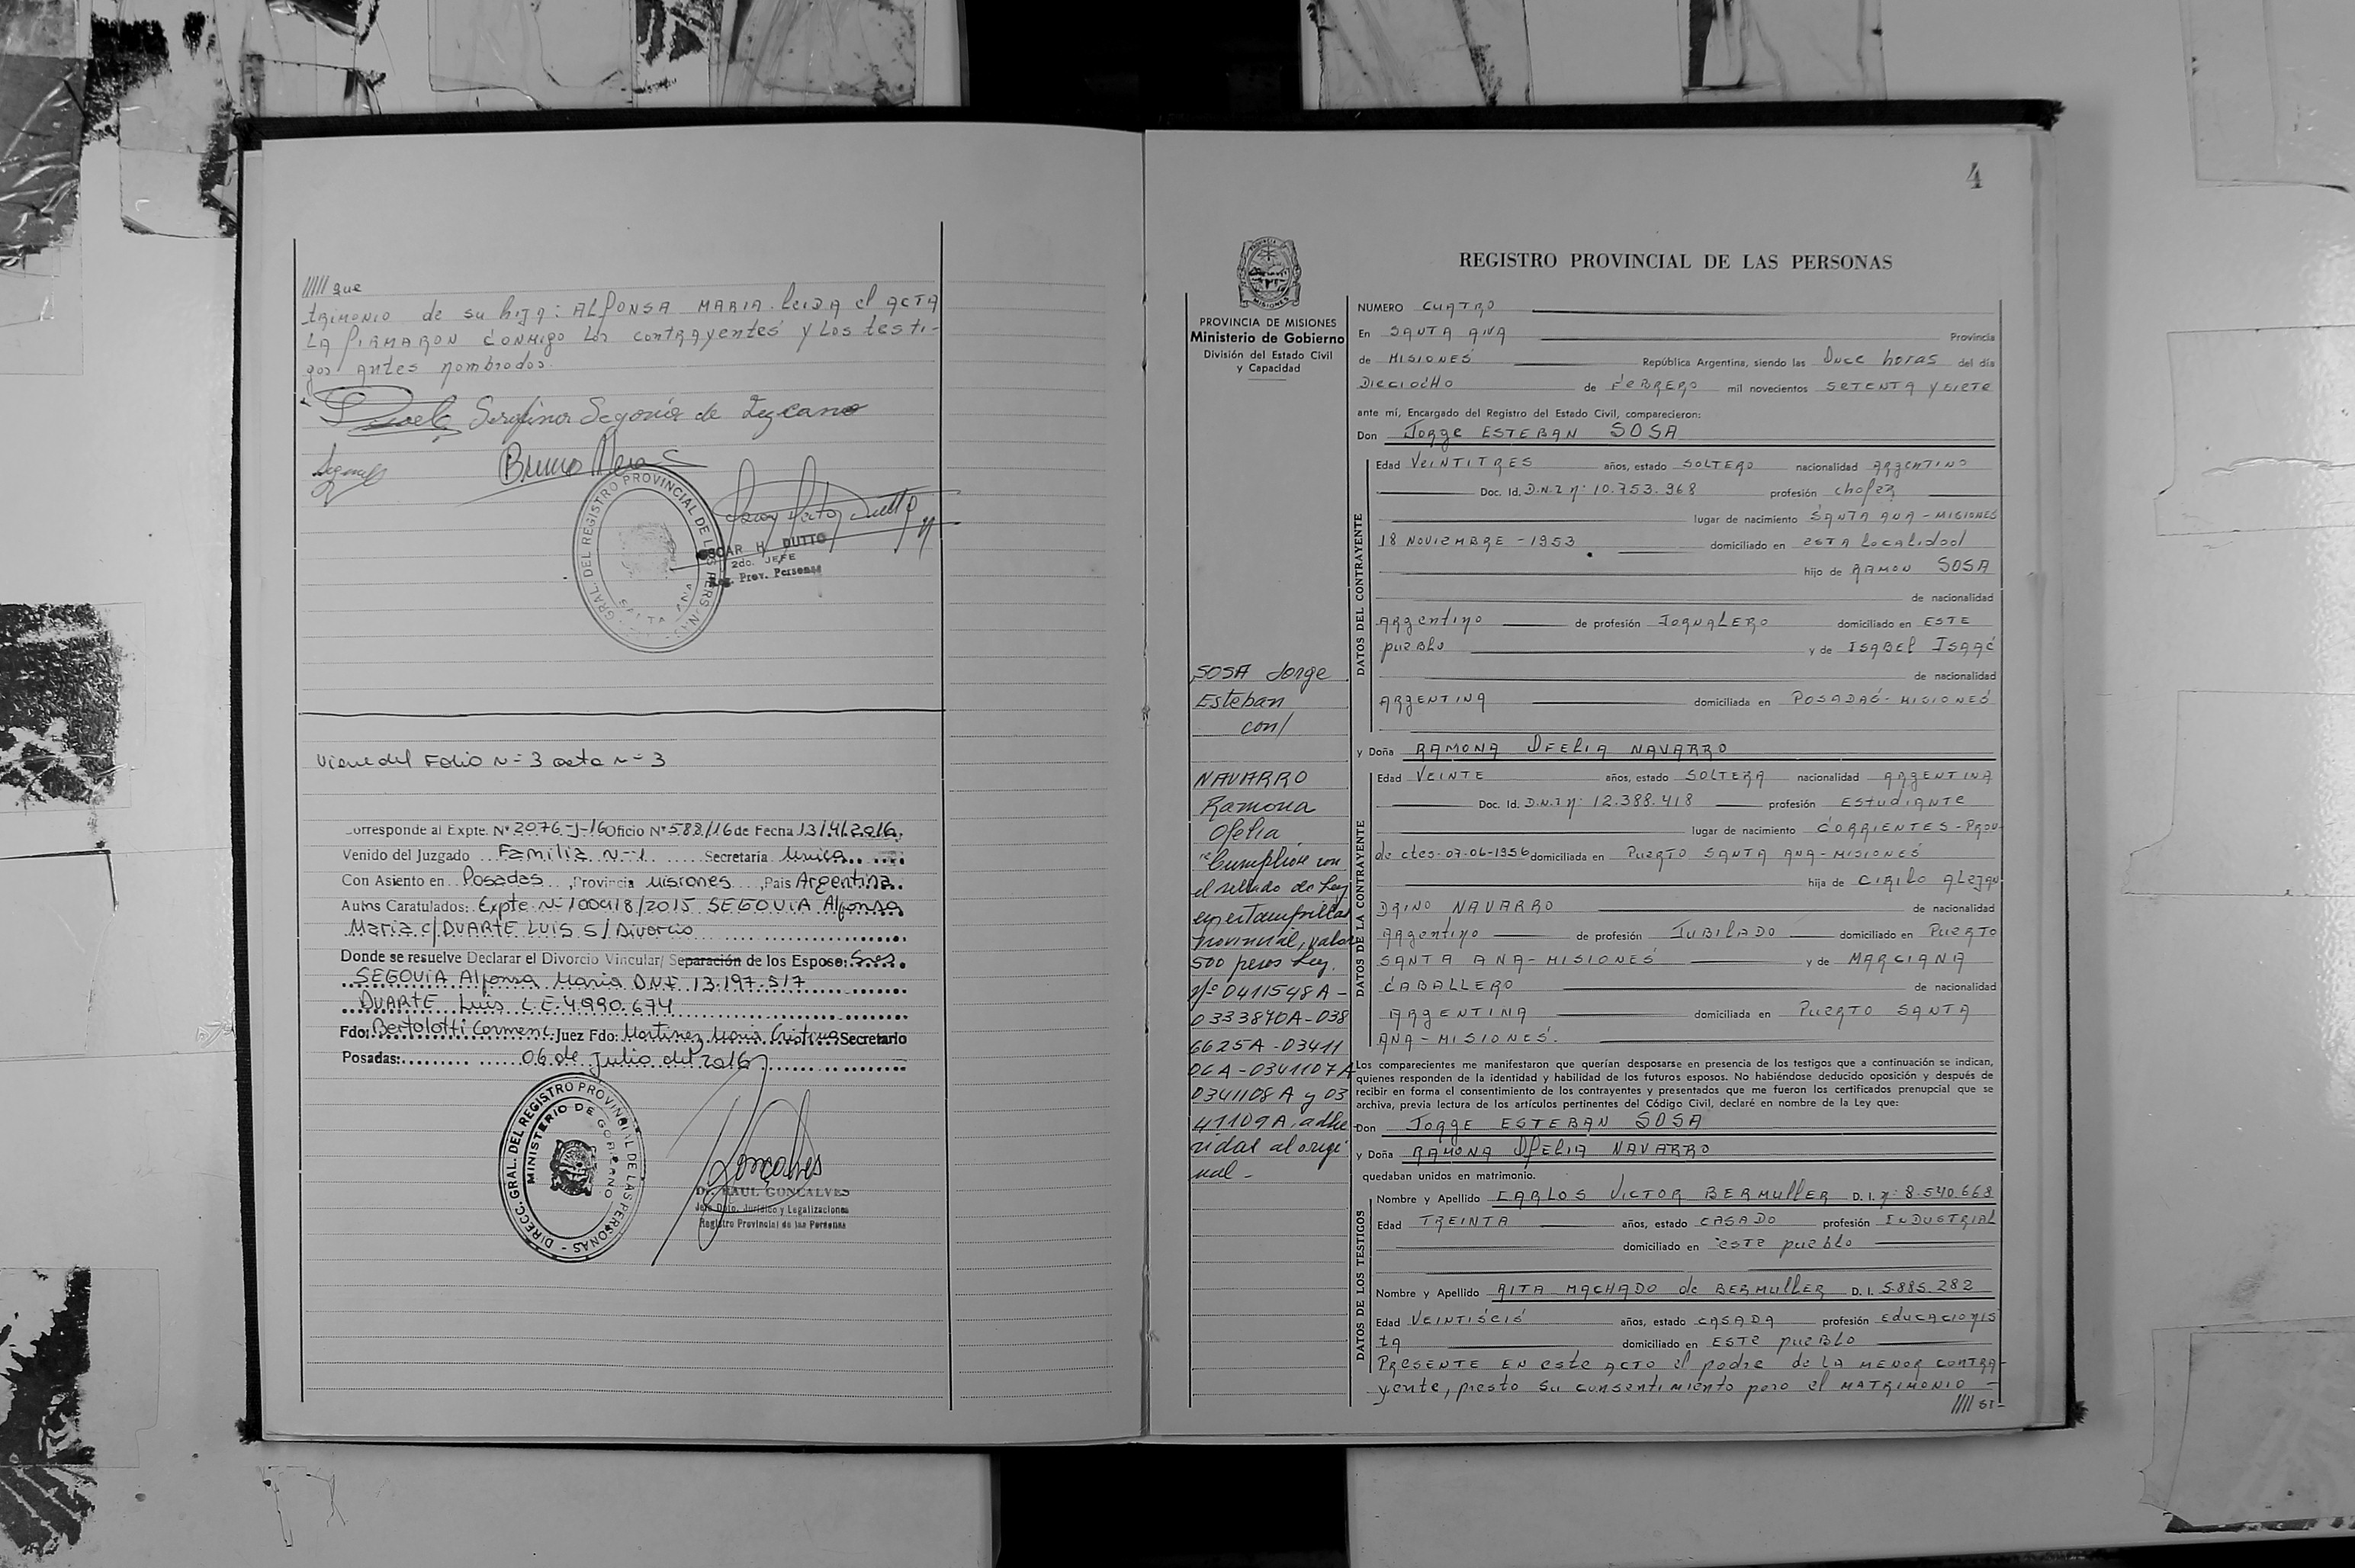 ///// que
trimonio de su hija: ALFONSA MARIA. leida el ACTA
LA FIRMARON CONMIGO los contrayentes y los testi-
gos antes nombrados.
Serafina Segovia de Lezcano
Bruno Vera
GRAL. DEL REGISTRO PROVINCIAL DE LAS PERSONAS
SANTA ANA
OSCAR H. DUTTO
2do. JEFE
Reg. Prov. Personas
Viene del Folio Nº 3 acta Nº 3
Corresponde al Expte. Nº 2076-J-16 Oficio Nº 588/16 de Fecha 13/4/2016.
Venido del Juzgado Familia Nº 1 Secretaría Unica
Con Asiento en Posadas, Provincia Misiones, Pais Argentina.
Autos Caratulados: Expte Nº 100418/2015 SEGOVIA Alfonsa
Maria c/ DUARTE LUIS S/ Divorcio
Donde se resuelve Declarar el Divorcio Vincular/ Separación de los Esposos: Sres.
SEGOVIA Alfonsa Maria D.N.I 13.197.517
DUARTE Luis L.E. 4.990.674
Fdo: Bertolotti Carmen C. Juez Fdo: Martinez Maria Cristina Secretario
Posadas: 06 de Julio del 2016
DIRECC. GRAL. DEL REGISTRO PROVINCIAL DE LAS PERSONAS
MINISTERIO DE GOBIERNO
Goncalves
Dr. RAUL GONCALVES
Jefe Dpto. Jurídico y Legalizaciones
Registro Provincial de las Personas
4
PROVINCIA DE MISIONES
Ministerio de Gobierno
División del Estado Civil
y Capacidad
SOSA Jorge
Esteban
con/
NAVARRO
Ramona
Ofelia
Cumplióse con
el sellado de Ley
en estampillas
provincial, valor
500 pesos Ley.
Nº 0411548A-
0333870A-038
6625A-03411
06A-0341107A
0341108A y 03
41109A. adhe
ridas al origi
nal-
REGISTRO PROVINCIAL DE LAS PERSONAS
NUMERO CUATRO
En SANTA ANA Provincia
de MISIONES República Argentina, siendo las Once horas del día
DIECIOCHO de FEBRERO mil novecientos SETENTA Y SIETE
ante mí, Encargado del Registro del Estado Civil, comparecieron:
Don Jorge ESTEBAN SOSA
DATOS DEL CONTRAYENTE
Edad VEINTITRES años, estado SOLTERO nacionalidad ARGENTINO
Doc. Id. D.N.I Nº 10.753.968 profesión chofer
lugar de nacimiento SANTA ANA - MISIONES
18 NOVIEMBRE - 1953 domiciliado en esta localidad
hijo de RAMON SOSA
de nacionalidad
Argentino de profesión JORNALERO domiciliado en ESTE
pueblo y de ISABEL ISAAC
de nacionalidad
ARGENTINA domiciliada en POSADAS - MISIONES
y Doña RAMONA OFELIA NAVARRO
DATOS DE LA CONTRAYENTE
Edad VEINTE años, estado SOLTERA nacionalidad ARGENTINA
Doc. Id. D.N.I Nº 12.388.418 profesión Estudiante
lugar de nacimiento CORRIENTES - PROV.
de ctes. 07-06-1956 domiciliada en PUERTO SANTA ANA - MISIONES
hija de CIRILO ALEJAN
DRINO NAVARRO de nacionalidad
Argentino de profesión JUBILADO domiciliado en PUERTO
SANTA ANA - MISIONES y de MARCIANA
CABALLERO de nacionalidad
ARGENTINA domiciliada en PUERTO SANTA
ANA - MISIONES.
Los comparecientes me manifestaron que querían desposarse en presencia de los testigos que a continuación se indican,
quienes responden de la identidad y habilidad de los futuros esposos. No habiéndose deducido oposición y después de
recibir en forma el consentimiento de los contrayentes y presentados que me fueron los certificados prenupcial que se
archiva, previa lectura de los artículos pertinentes del Código Civil, declaré en nombre de la Ley que:
Don Jorge ESTEBAN SOSA
y Doña RAMONA OFELIA NAVARRO
quedaban unidos en matrimonio.
DATOS DE LOS TESTIGOS
Nombre y Apellido CARLOS VICTOR BERMULLER D. I. Nº: 8.540.668
Edad TREINTA años, estado CASADO profesión INDUSTRIAL
domiciliado en este pueblo
Nombre y Apellido RITA MACHADO de BERMULLER D. I. 5.885.282
Edad VEINTISEIS años, estado CASADA profesión Educacionis
ta domiciliado en ESTE pueblo
PRESENTE EN este ACTO el padre de LA MENOR CONTRA-
yente, presto su consentimiento para el MATRIMONIO -
//// SI-